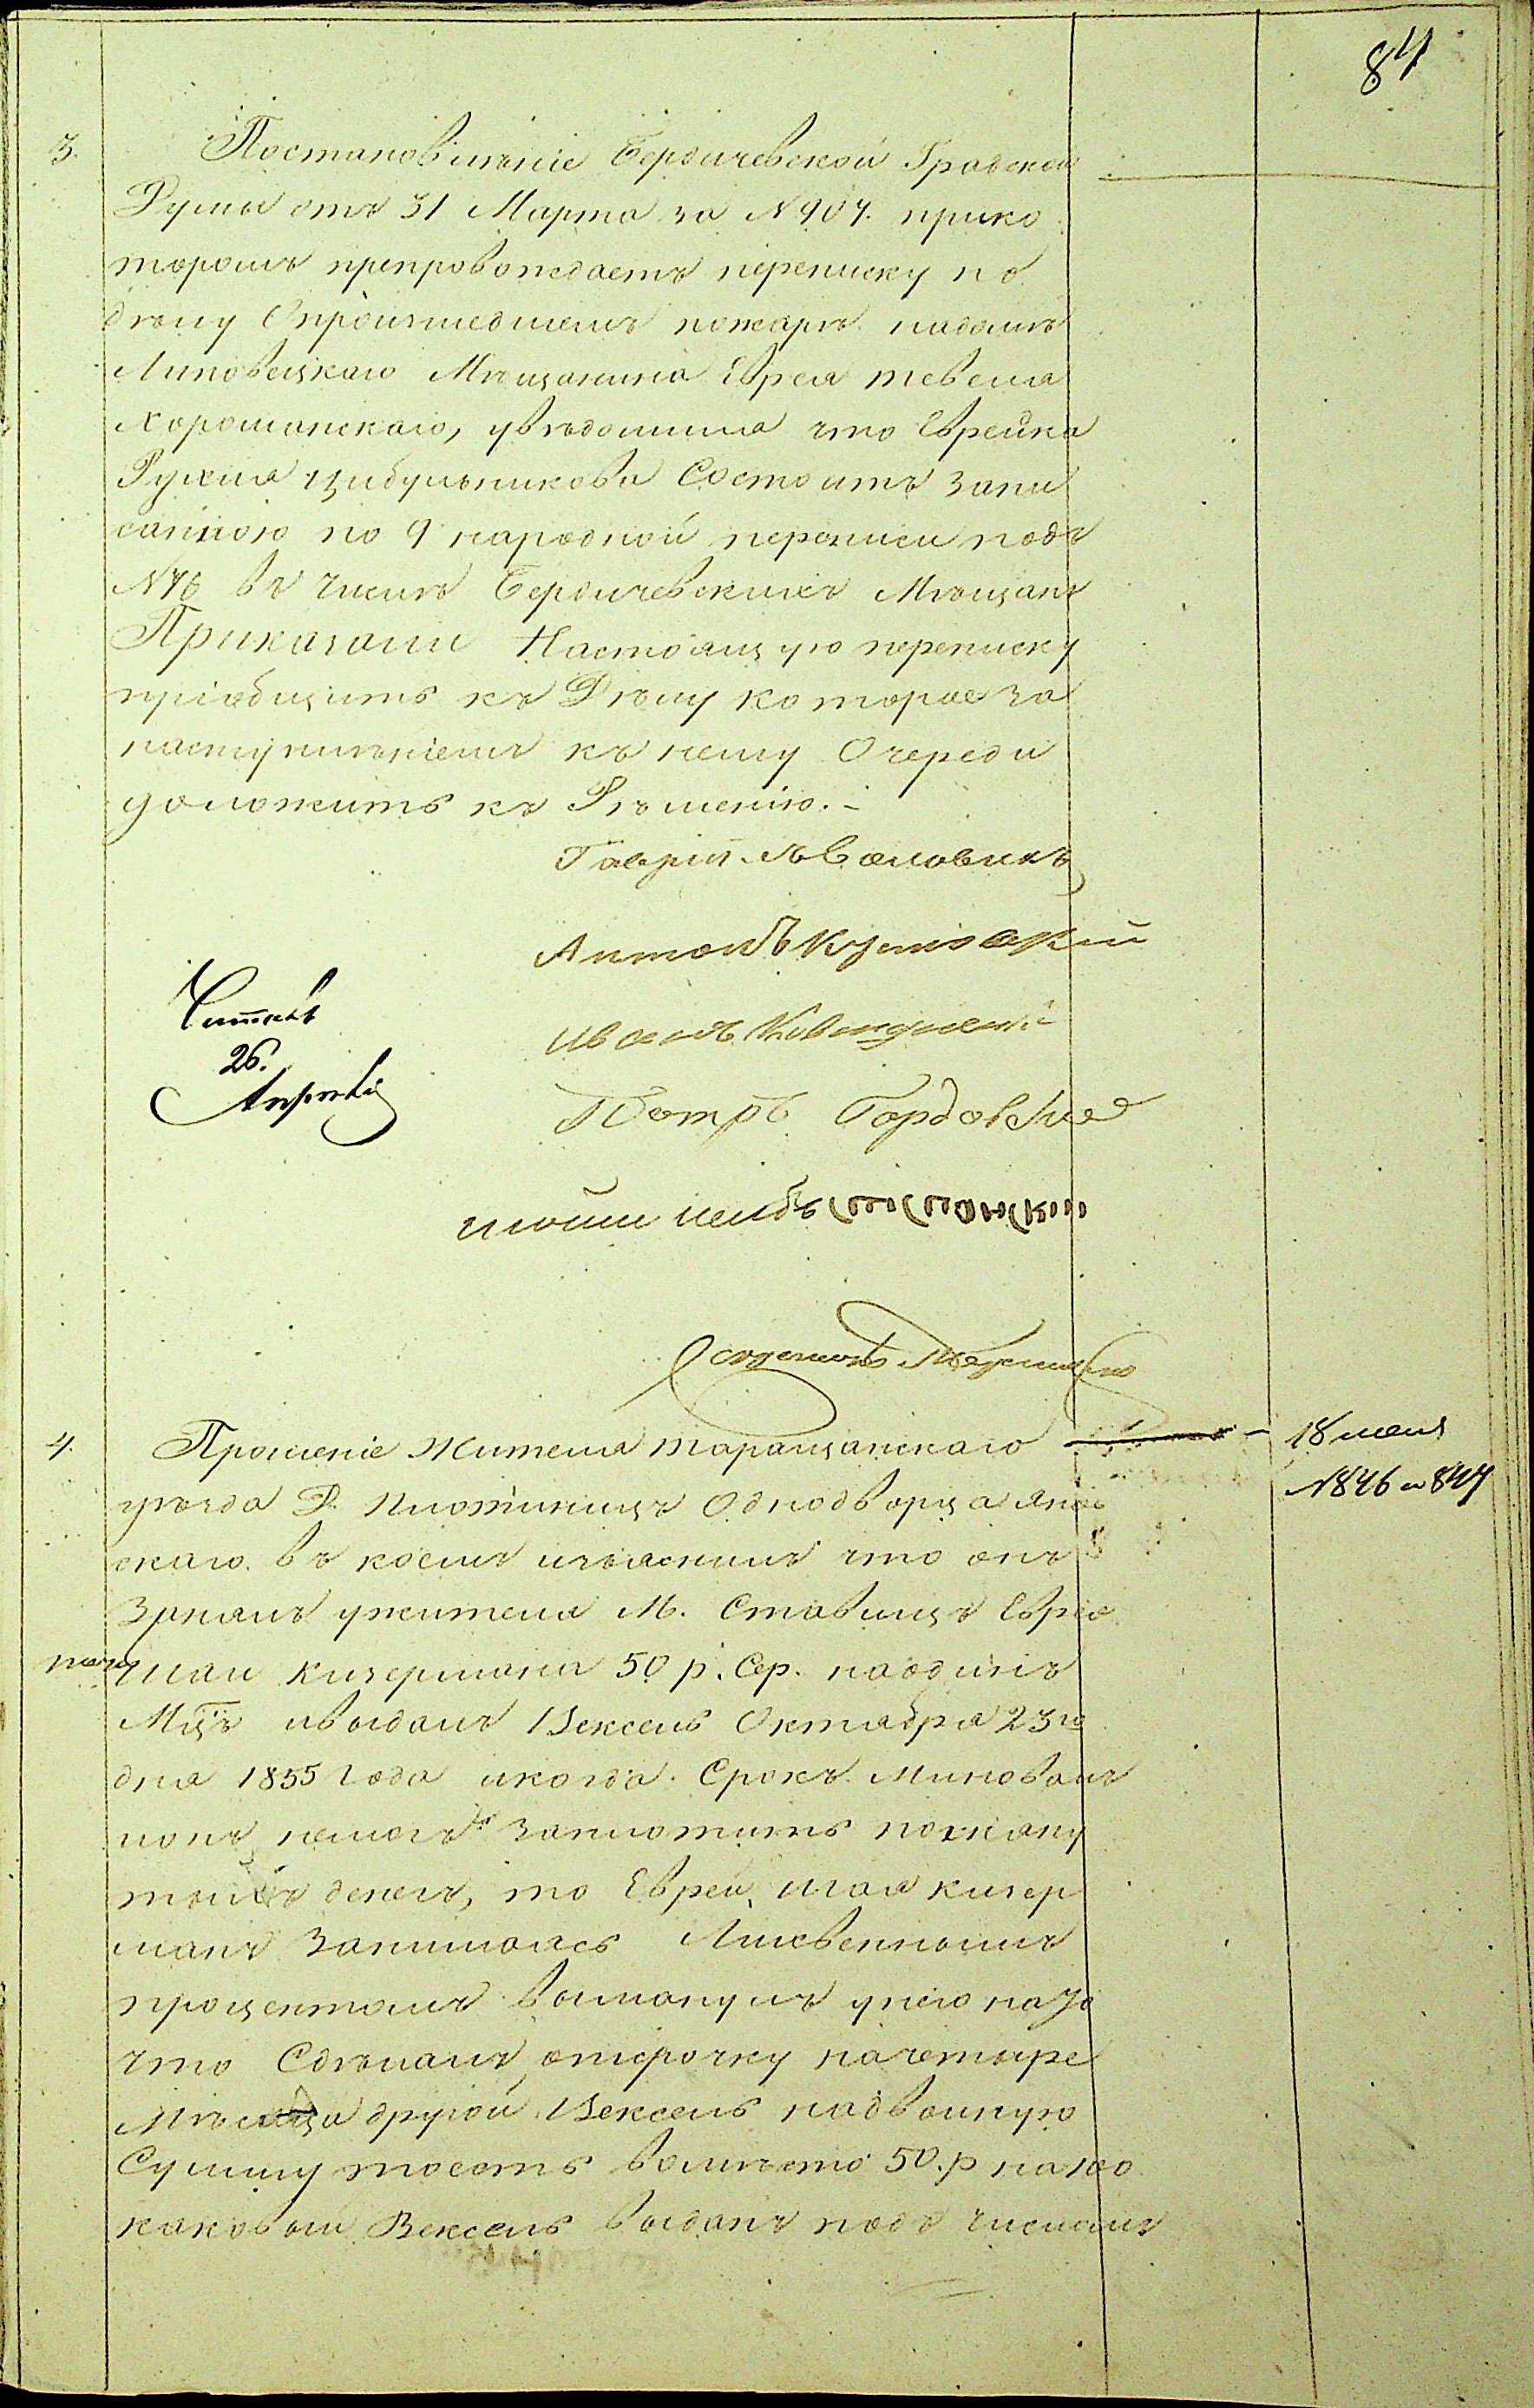 84
3.
Постановлѣніе Бердичевской Градской
Думы отъ 31 Марта за N 907. прико
торомъ препровождаетъ переписку по
дѣлу Опроизшедшемъ пожарѣ надомъ
Липовецкаго Мѣщанина Еврея тевеля
Хорошанскаго, увѣдомила что Еврейка
Рухля Цибульникова Состоитъ запи
санною по 9 народной переписи подъ
N 76 въ числѣ Бердичевскихъ Мѣщанъ
Приказали Настоящую переписку
пріобщить къ Дѣлу которое за
наступлѣніемъ къ нему Очереди
доложить къ Рѣшенію. –
Антонъ
Иванъ
Петръ
Читалъ
26.
Апрѣля
4.
Прошеніе Жителя таращанскаго
уѣзда Д. Плотиницъ Однодворца Янов
скаго въ коемъ изъяснилъ что онъ
Зρналъ ужителя М. Ставищъ Еврея
Шаи Кизермана 50 р. Сер. наодинъ
Мцъ ивыдалъ Вексель Октября 23го
дня 1855 года икогда Срокъ Миновалъ
ионъ немогъ заплотить позжану
тыхъ денегъ, то Еврей Шая Кизер
манъ Занимаясь Лихвеннымъ
процентомъ выманулъ унего назо
что Сдѣлалъ отсрочку начетыре
Мѣсяца другой Вексель надвойную
Сумму тоесть вомѣсто 50. р на 100
каковый Вексель выданъ подъ числомъ
18 июня
N 846 и 847